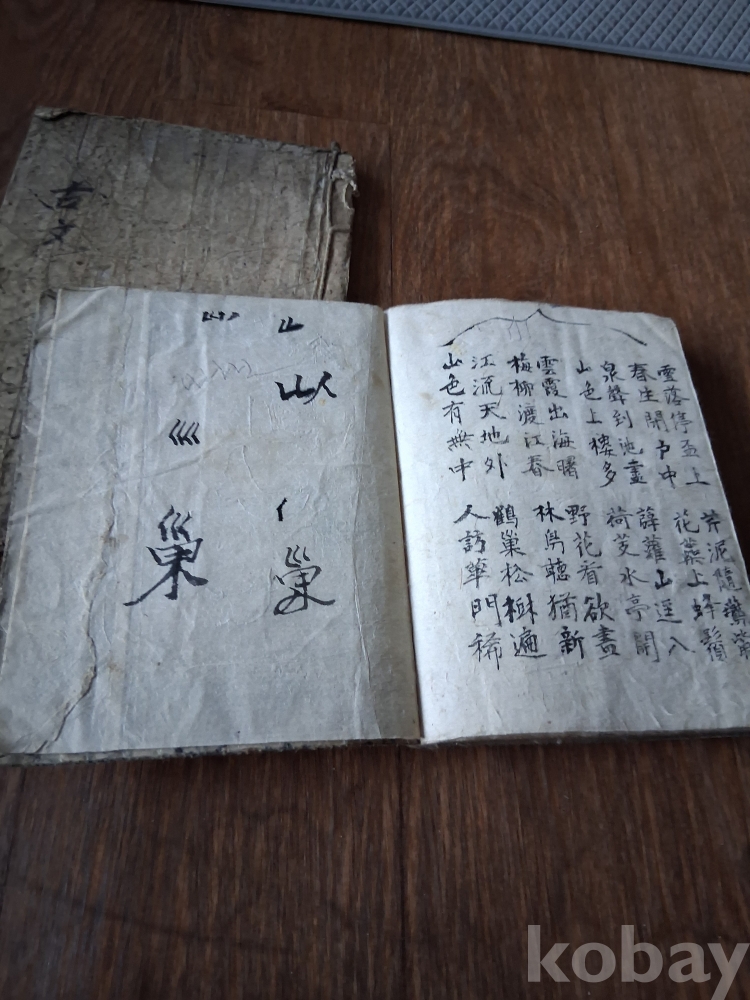 古文
雪落停盃上
春生開户中
泉聲到池盡
山色上樓多
雲霞出海曙
梅柳渡江春
江流天地外
山色有無中
芹泥隨鷰觜
花蘂上蜂鬚
薜蘿山逕入
荷芰水亭開
野花看欲盡
林鳥聽猶新
鶴巢松樹遍
人訪蓽門稀
巛
巢
kobay